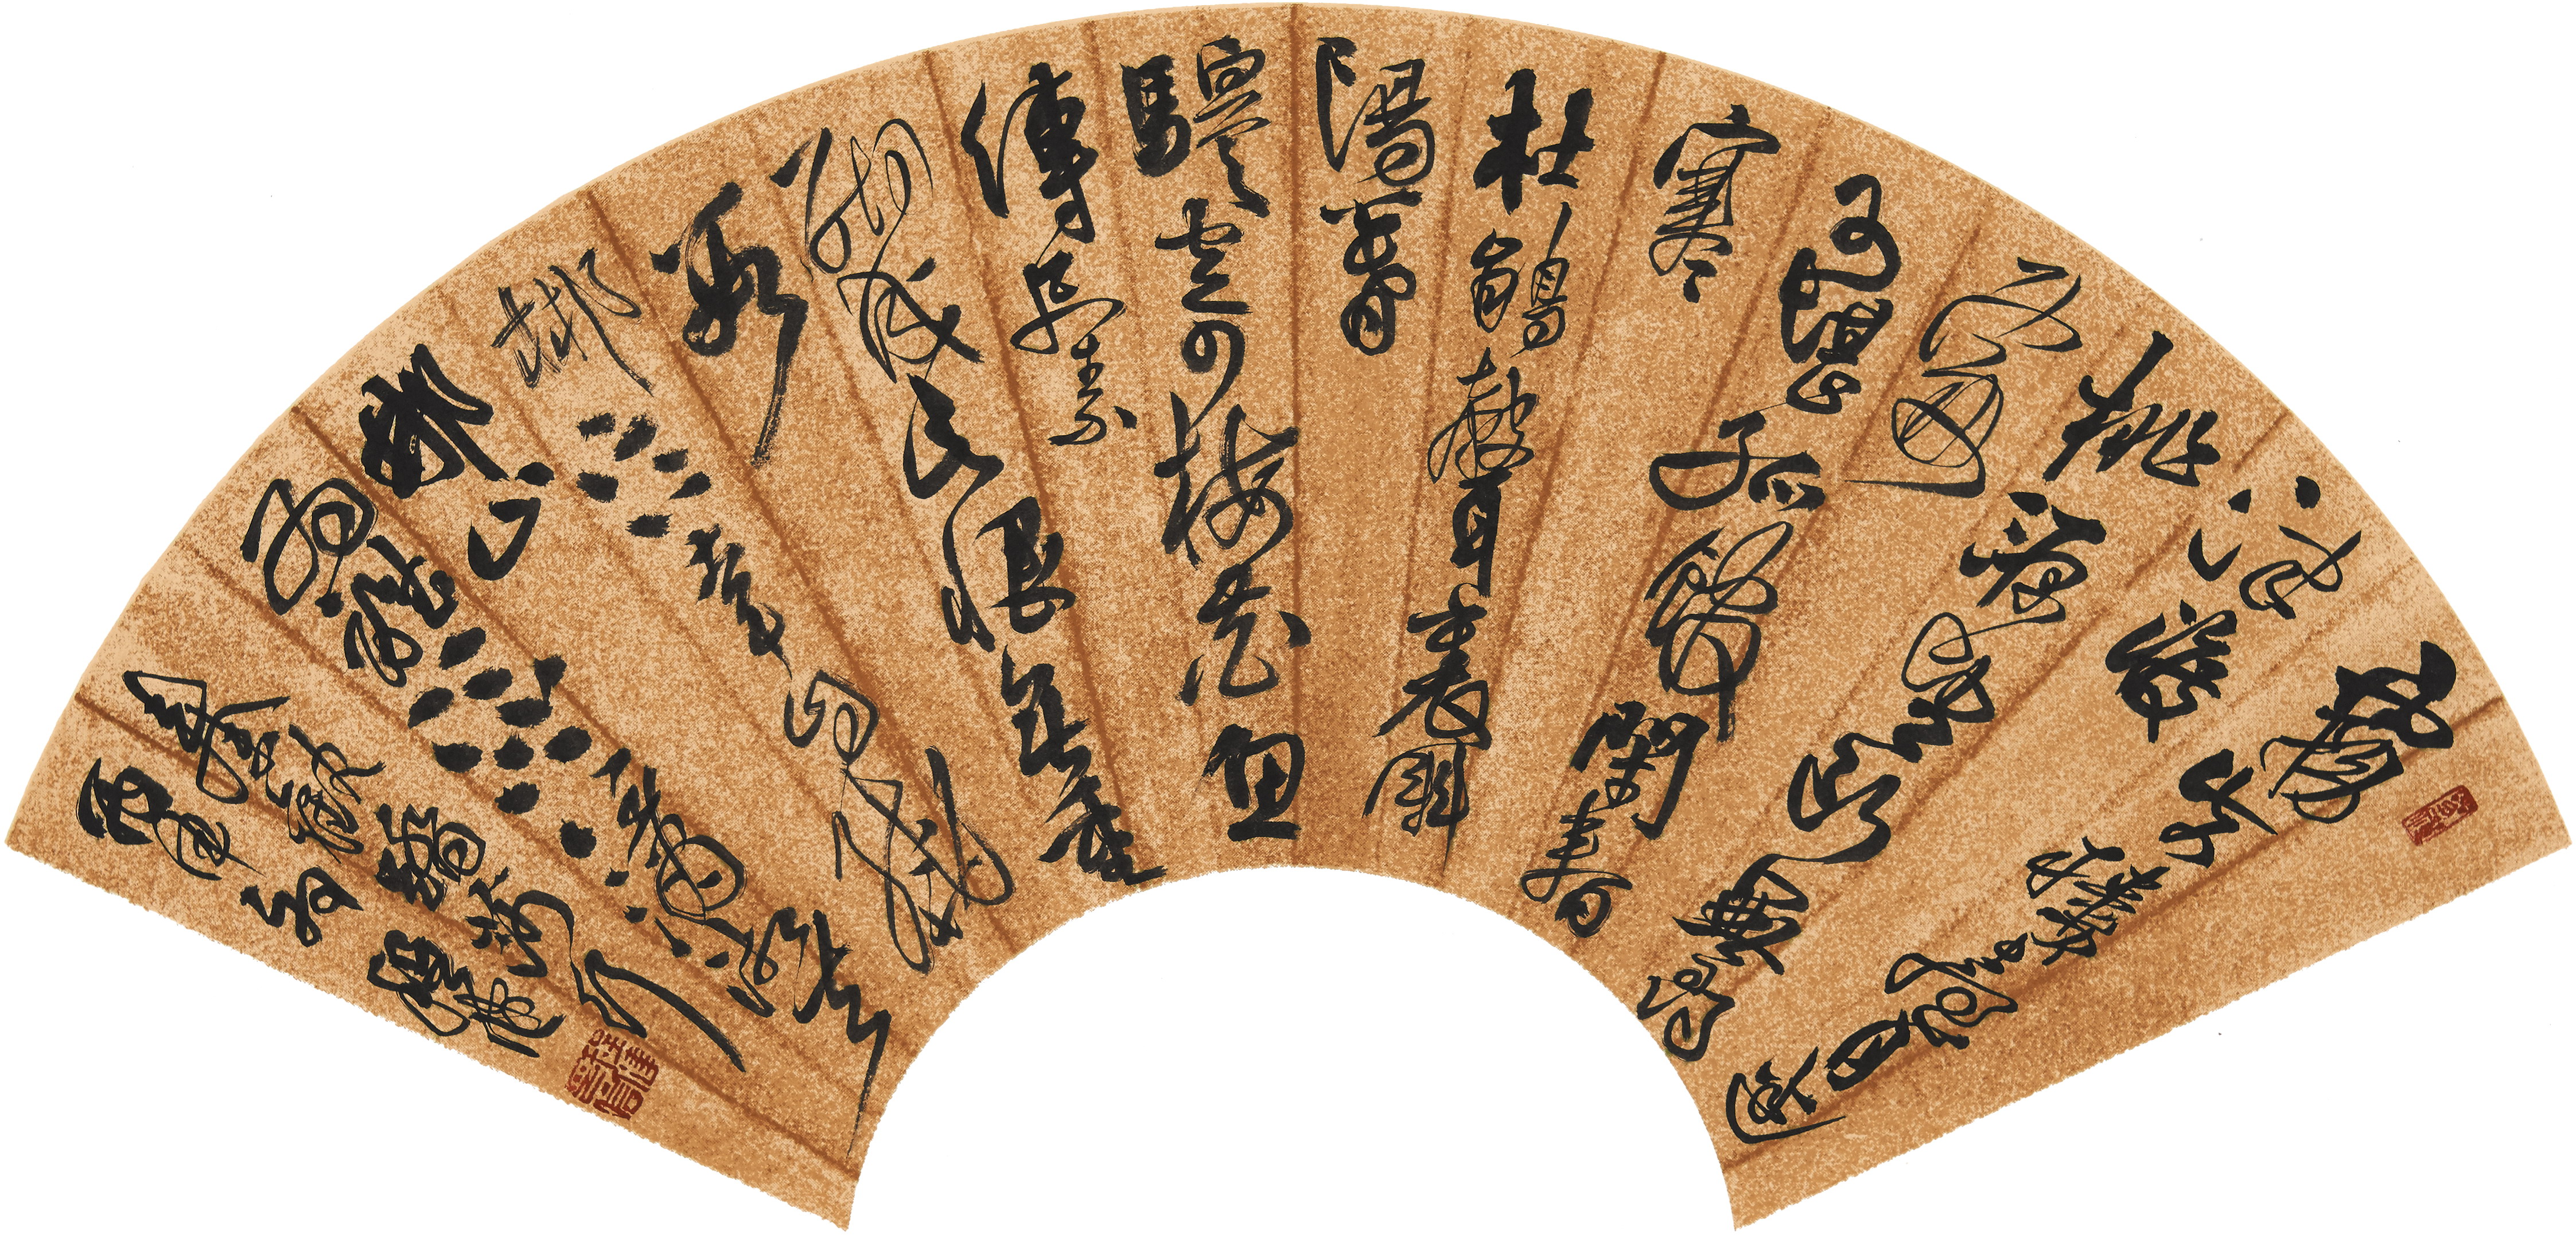 霧失樓臺月迷
津渡
桃源望斷無尋
處
可堪孤館閉春
寒
杜鵑聲裏
陽暮
驛寄梅花魚
傳尺素
砌成此恨無重
數
郴江幸自繞
郴山
為誰流下瀟湘去
秦觀詞踏莎行